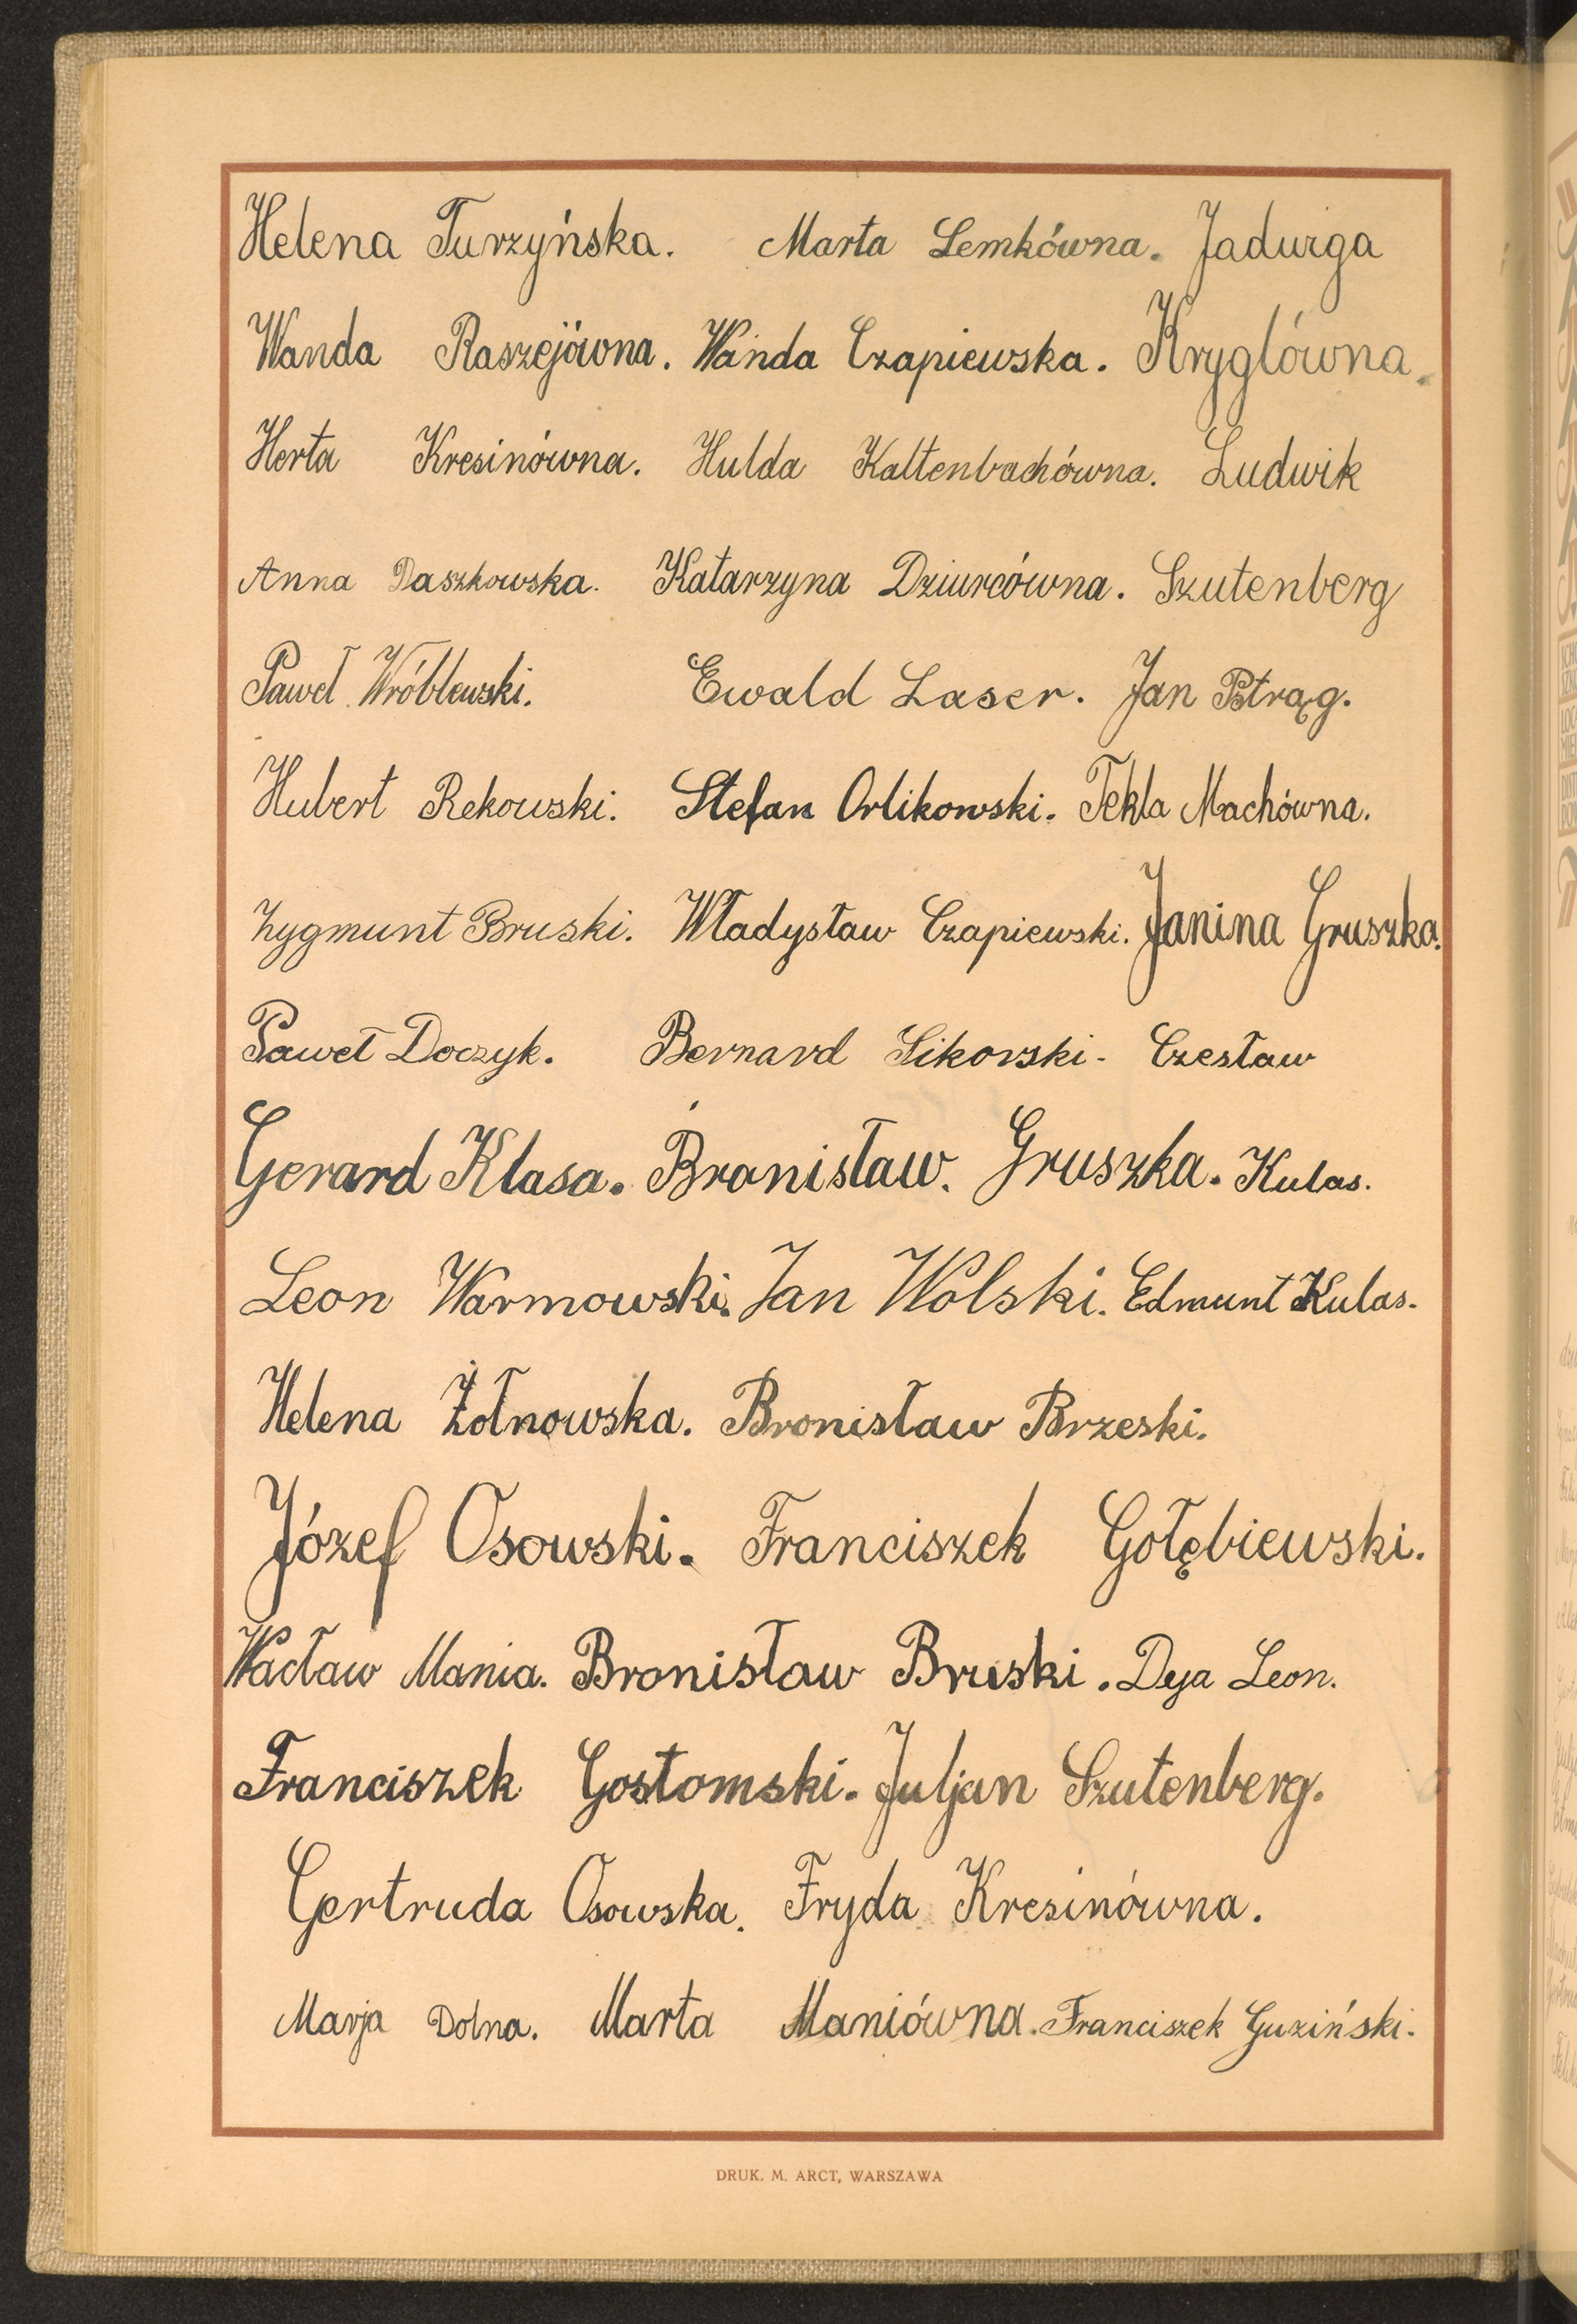 Helena Turzyńska. Marta Lemkówna. Jadwiga
Wanda Raszejówna. Wanda Czapiewska. Kryglówna.
Herta Kresinówna. Hulda Kaltenbachówna. Ludwik
Anna Daszkowska. Katarzyna Dziurcówna. Szutenberg
Paweł Wróblewski. Ewald Laser. Jan Pstrąg.
Hubert Rekowski. Stefan Orlikowski. Tekla Machówna.
Zygmunt Bruski. Władysław Czapiewski. Janina Gruszka.
Paweł Doczyk. Bernard Sikorski. Czesław
Gerard Klasa. Bronisław. Gruszka. Kulas.
Leon Warmowski. Jan Wolski. Edmunt Kulas.
Helena Żołnowska. Bronisław Brzeski.
Józef Osowski. Franciszek Gołębiewski.
Wacław Mania. Bronisław Bruski. Deja Leon.
Franciszek Gostomski. Juljan Szutenberg.
Gertruda Osowska. Fryda Kresinówna.
Marja Dolna. Marta Maniówna. Franciszek Guziński.
DRUK. M. ARCT, WARSZAWA